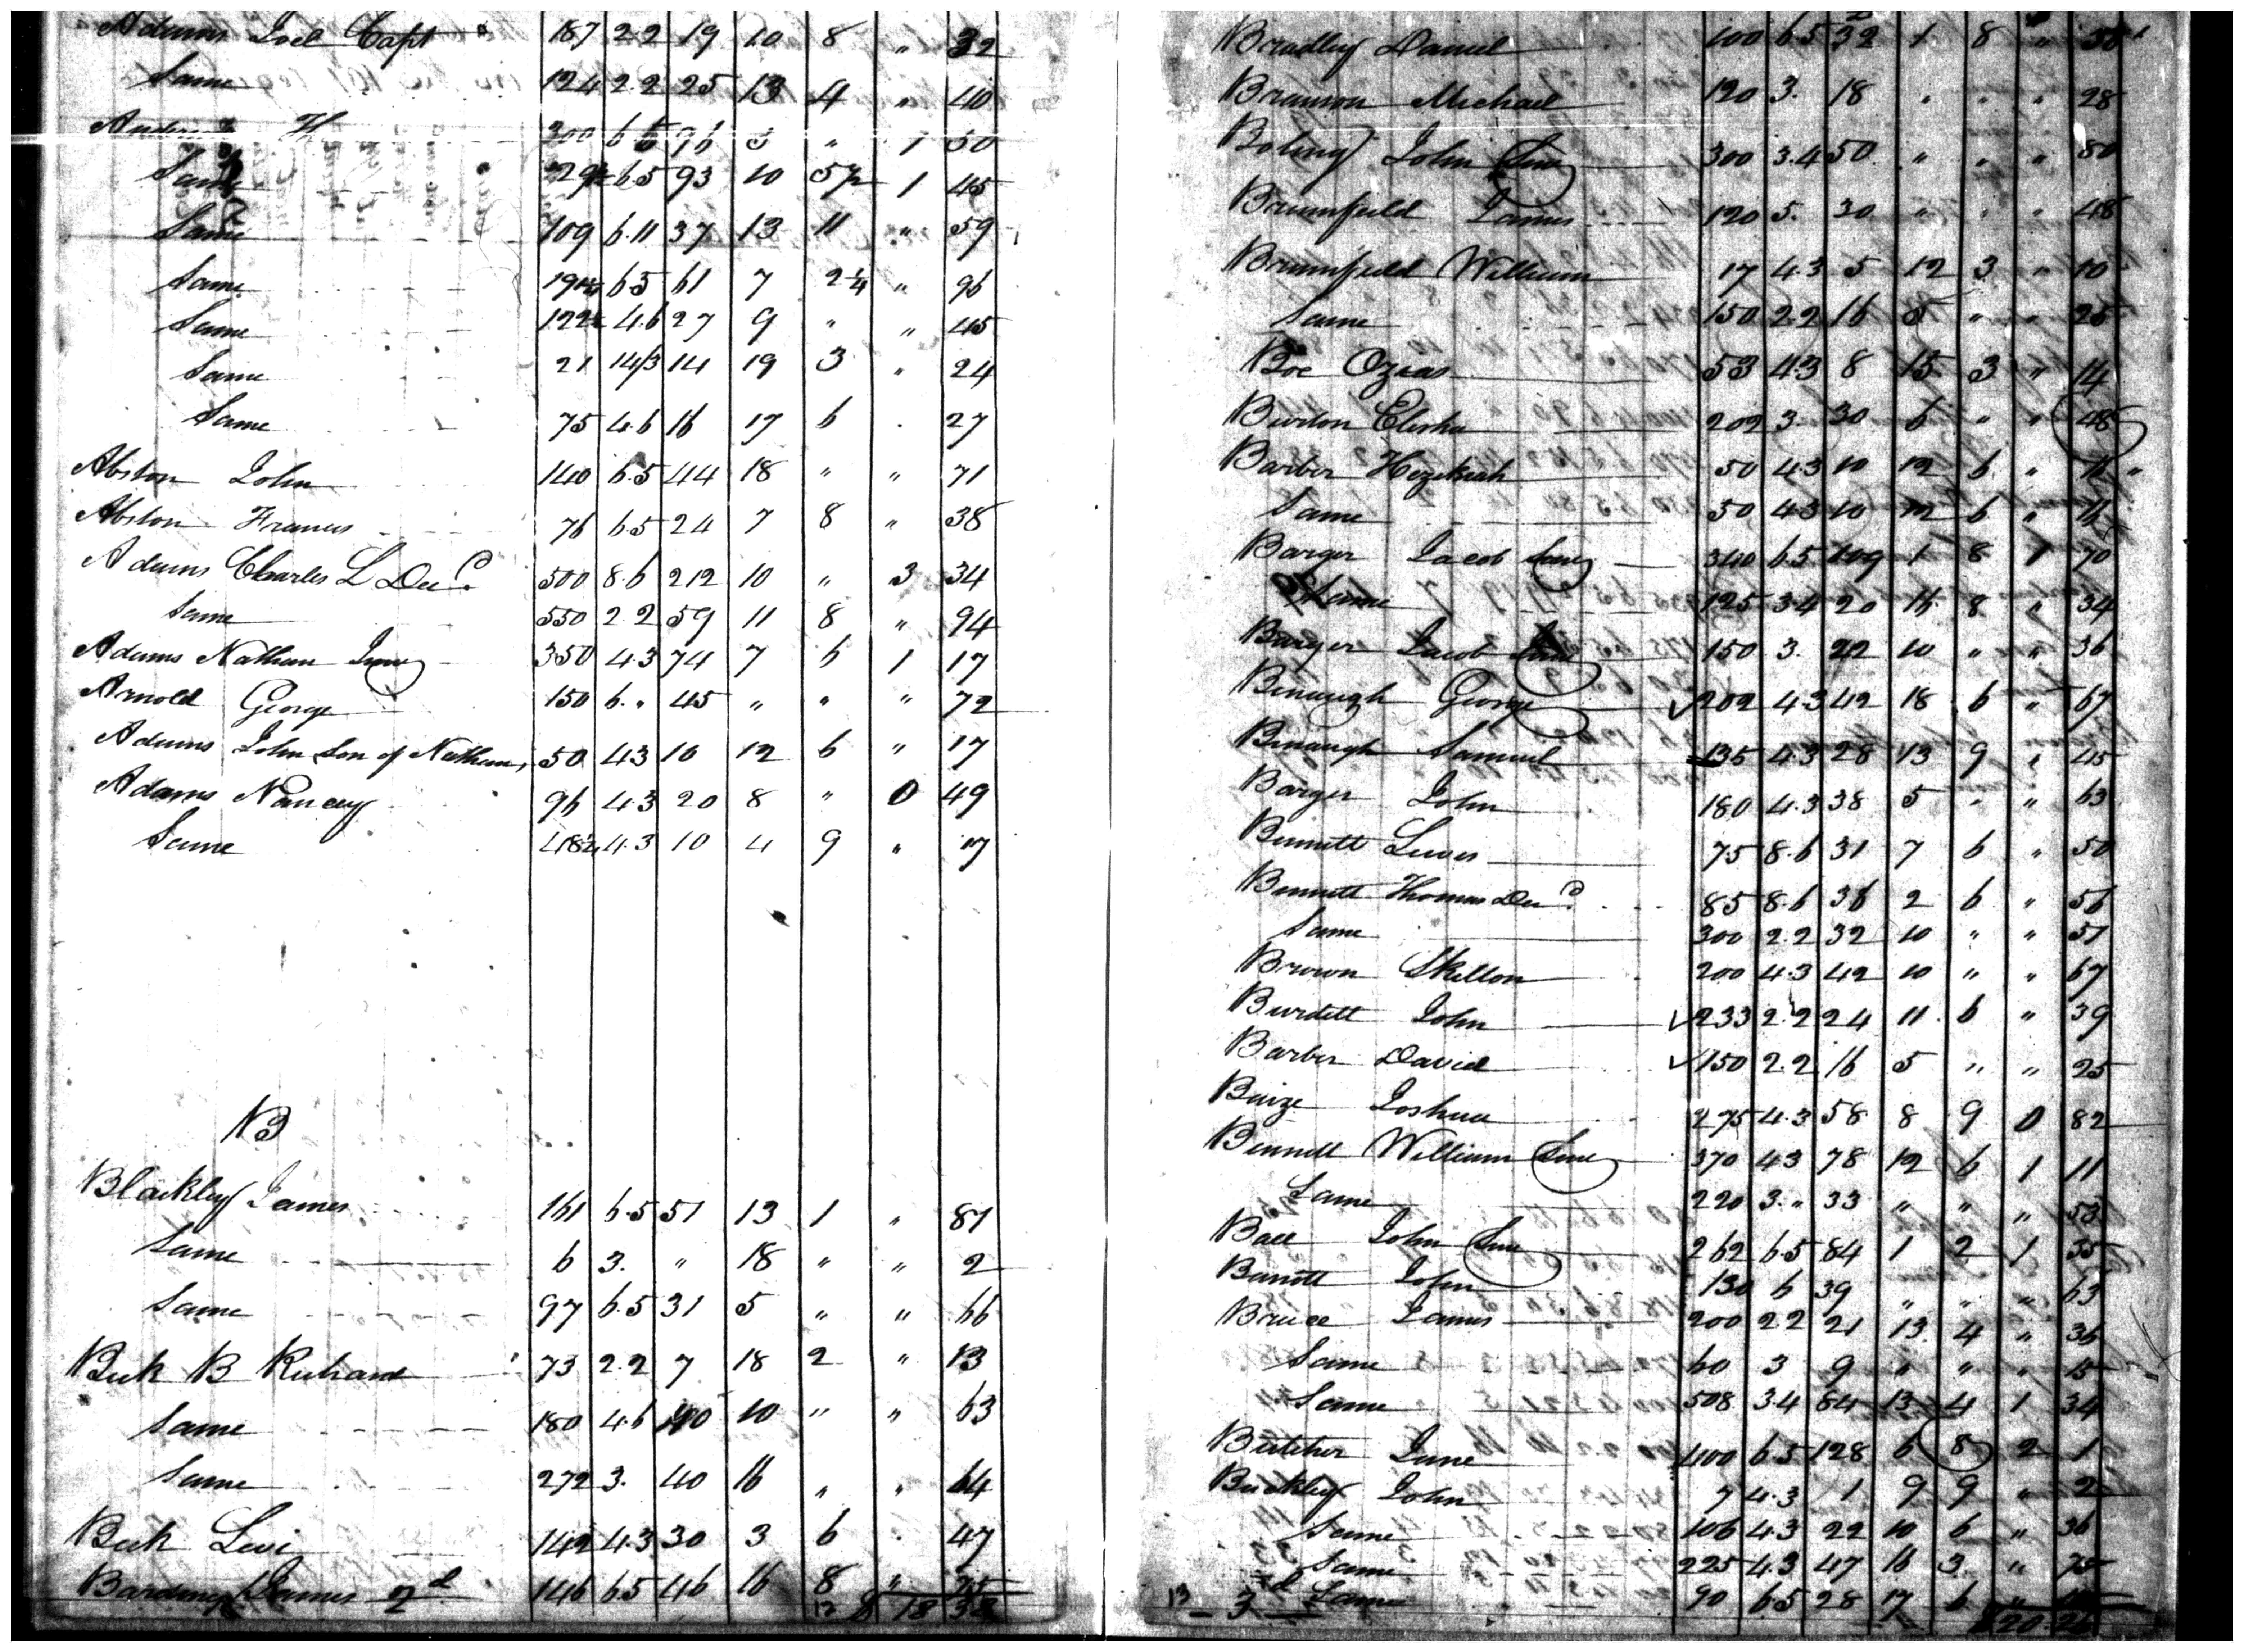 Adams Joel Capt 187 2.2 19 10 8 " 32
Same 124 2.2 25 13 4 " 40
H 200 6.5 96 5 " 1 50
Same 6.5 93 10 5½ 1 45
Same 109 6.11 37 13 11 " 59
Same 6.5 61 7 2¼ " 96
Same 4.6 27 9 " " 45
Same 21 14/3 14 19 3 " 24
Same 75 4.6 16 17 6 . 27
Abston John 140 6.5 44 18 " " 71
Abston Francis 76 6.5 24 7 8 " 38
Adams Charles L Decd. 500 8.6 212 10 " 3 34
Same 550 2 2 59 11 8 " 94
Adams Nathan Junr 350 4.3 74 7 6 1 17
Arnold George 150 6. " 45 " " " 72
Adams John Son of Nathan, 50 4.3 10 12 6 " 17
Adams Nancy 96 4.3 20 8 " 0 49
Same 4.3 10 4 9 " 17
B
Blackley James 161 6.5 51 13 1 " 81
Same 6 3. " 18 " " 2
Same 97 6.5 31 5 " " 66
Beck B Richard 73 2.2 7 18 2 " 13
Same 180 4.6 40 10 " " 63
Same 272 3. 40 16 " " 64
Beck Levi 142 4.3 30 3 6 . 47
James 2d 146 6.5 46 16 8 "
18 38
Bradley Daniel 100 6.5 32 1 8 "
Brannon Michael 120 3. 18 " " " 28
Boling John Senr 300 3.4 50 " " " 80
Brumfield James 120 5. 30 " " " 48
Brumfield William 17 4.3 5 12 3 " 10
Same 150 2.2 16 5 " " 25
Boe Ozias 53 4.3 8 15 3 " 14
Burton Elisha 202 3. 30 6 " " 48
Barber Hezekiah 50 4.3 10 12 6 "
Same 50 4.3 10 12 6 "
Barger Jacob Senr 340 6.5 109 1 8 1 70
Same 125 3.4 20 16 8 " 34
Barger Jacob 150 3. 22 10 " " 36
Binaugh George 202 4.3 42 18 6 " 67
Binaugh Samuel 135 4.3 28 13 9 " 45
Barger John 180 4.3 38 5 " " 63
Bennett Lewis 75 8.6 31 7 6 " 50
Bennett Thomas Decd. 85 8.6 36 2 6 " 56
Same 300 2.2 32 10 " " 51
Brown Skelton 200 4.3 42 10 " " 67
Burdett John 233 2.2 24 11 6 " 39
Barber David 150 2.2 16 5 " " 25
Baize Joshua 275 4.3 58 8 9 0 82
Bennett William Senr 370 4.3 78 12 6 1 11
Same 220 3. " 33 " " " 53
Ball John Senr 262 6.5 84 1 2 1 35
John 130 6 39 " " " 63
Bruce James 200 2.2 21 13 4 " 36
Same 60 3 9 " " " 15
Same 508 3.4 84 13 4 1 34
Butcher June 400 6.5 128 6 8 2 1
Buckley John 7 4.3 1 9 9 " 2
Same 106 4.3 22 10 6 " 36
Same 225 4.3 47 16 3 " 75
Same 90 6.5 28 17 6 "